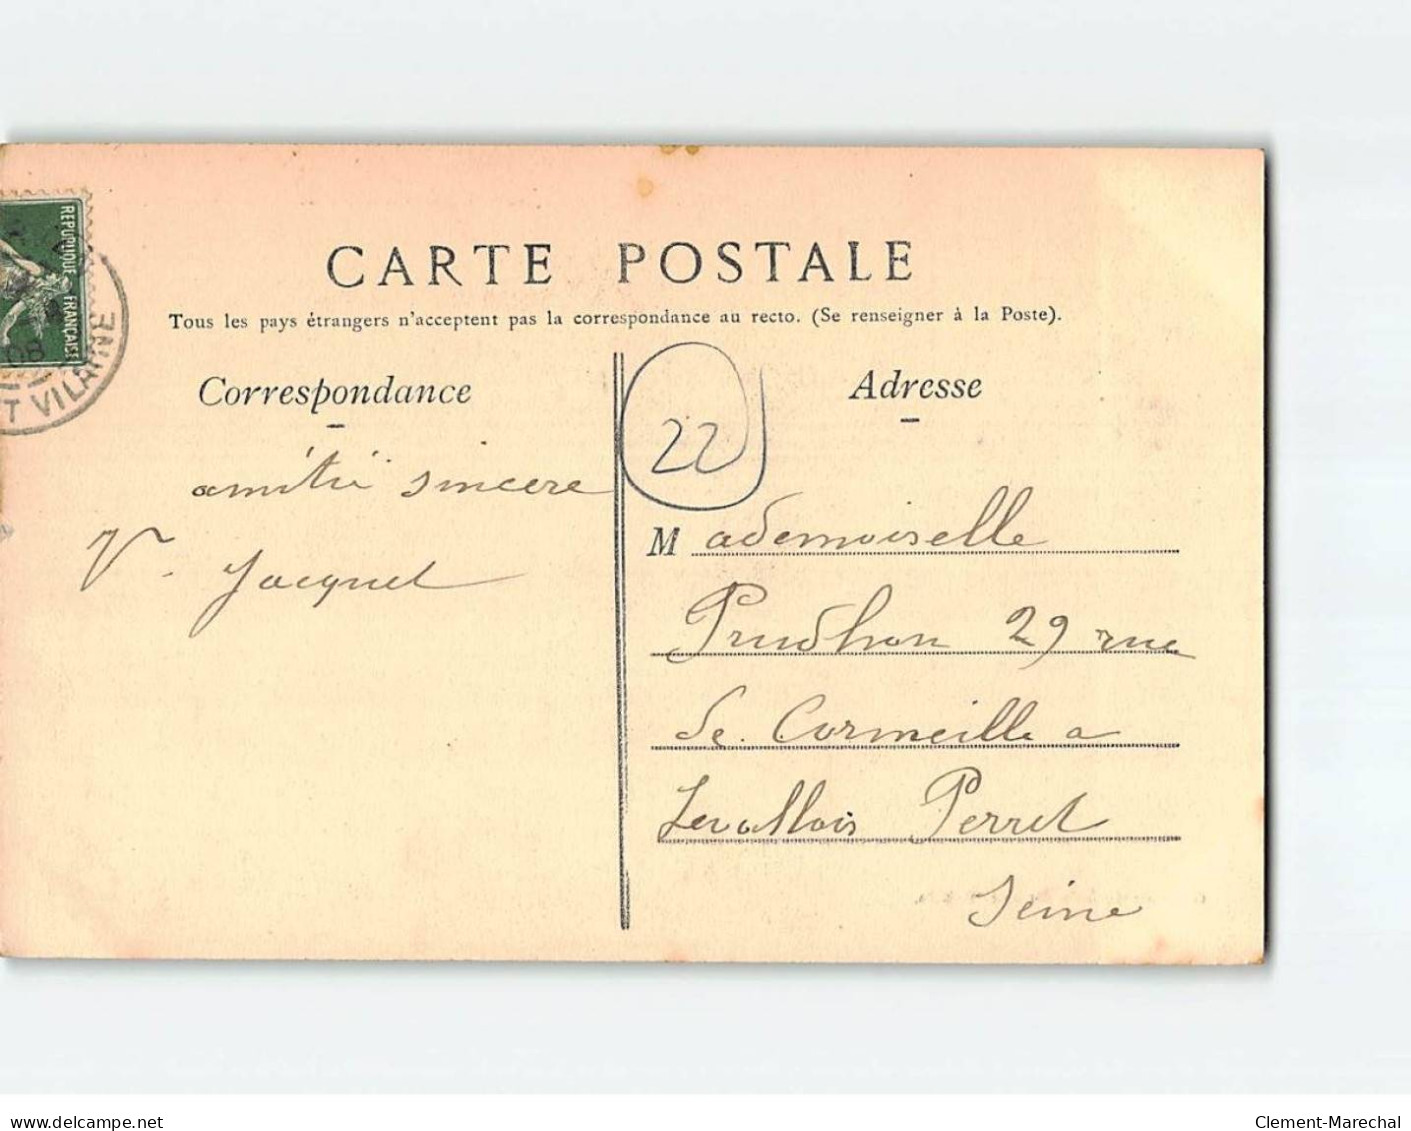 REPUBLIQUE FRANÇAISE
08
T VILAINE
CARTE POSTALE
Tous les pays étrangers n'acceptent pas la correspondance au recto. (Se renseigner à la Poste).
Correspondance
amitié sincere
V. Jacquet
Adresse
22
Mademoiselle
Prudhon 29 rue
de. Cormeille a
Levallois Perret
Seine
delcampe.net
Clement-Marechal